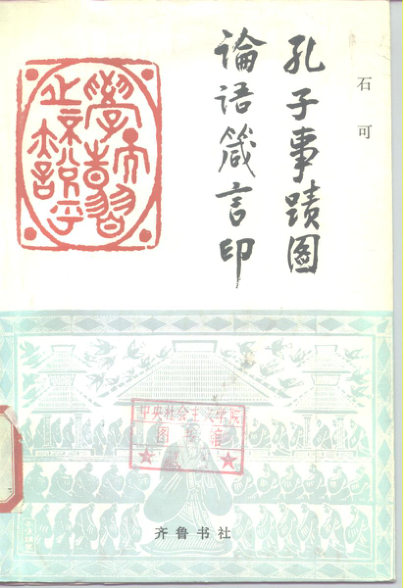 石可
孔子事蹟圖
論語箴言印
學而時習之不亦說乎
中央社会主义学院
图书馆
齐鲁书社